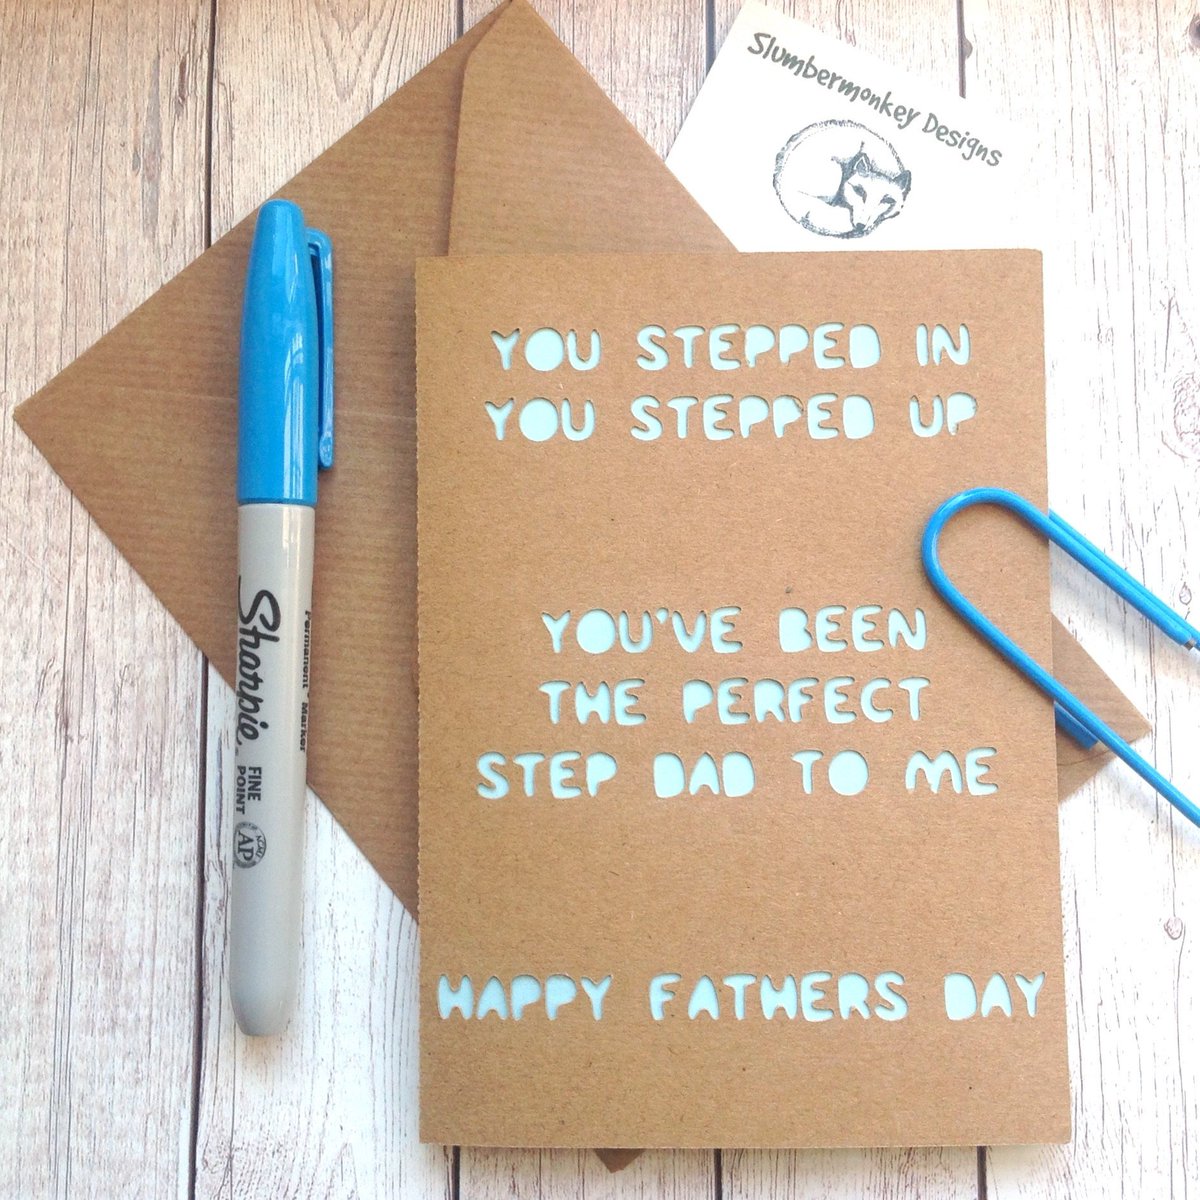 Slumbermonkey Designs
YOU STEPPED IN
YOU STEPPED UP
YOU'VE BEEN
THE PERFECT
STEP DAD TO ME
HAPPY FATHERS DAY
Sharpie
Permanent Marker
FINE
POINT
ACMI
AP